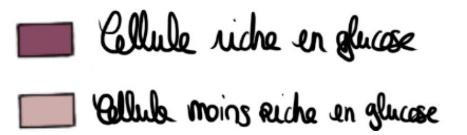 Cellule riche en glucose
Cellule moins riche en glucose